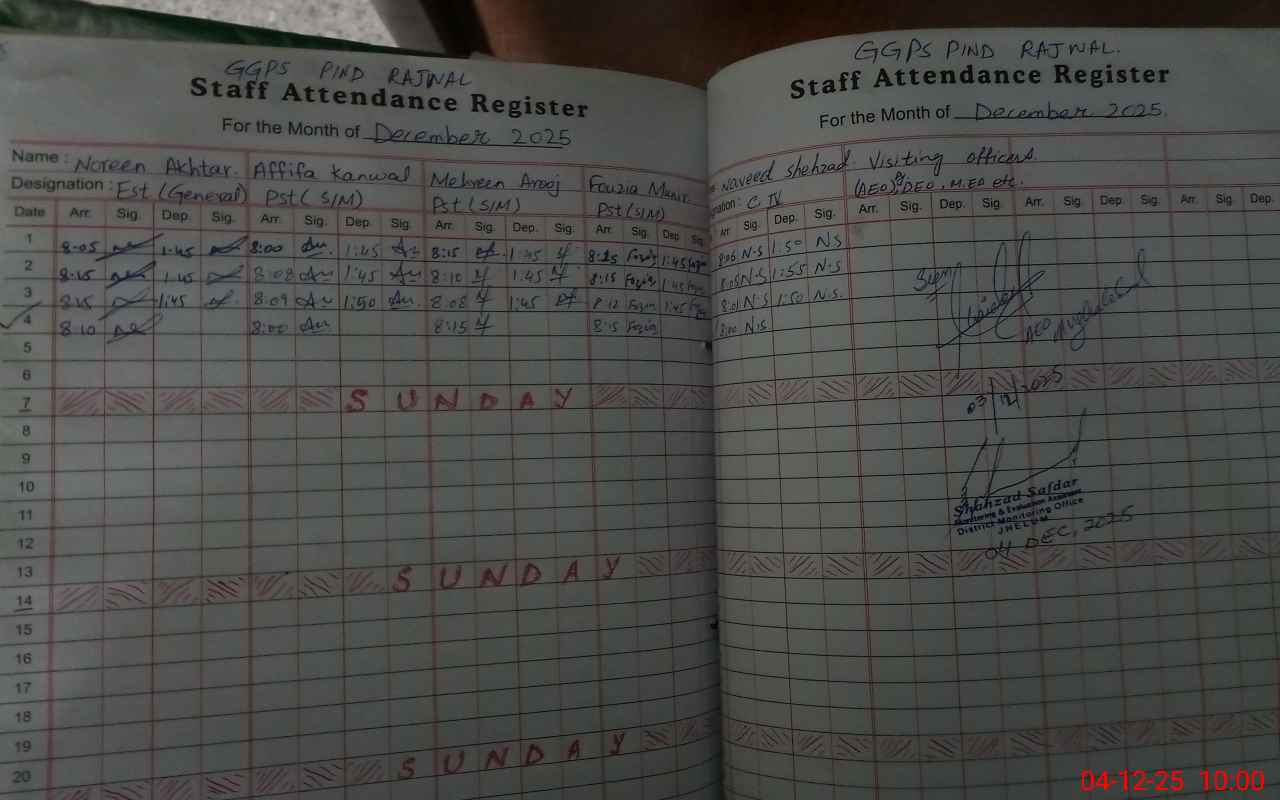 GGPS PIND RAJWAL
Staff Attendance Register
For the Month of December 2025
Name : Noreen Akhtar. Affifa Kanwal Mehreen Arooj Fouzia Munir.
Designation : Est (General) Pst (S/M) Pst (S/M) Pst (S/M)
Date Arr. Sig. Dep. Sig. Arr. Sig. Dep. Sig. Arr. Sig. Dep. Sig. Arr. Sig. Dep. Sig.
1 8:05 1:45 8:00 1:45 8:15 1:45 8:15 1:45
2 8:15 1:45 8:08 1:45 8:10 1:45 8:15 1:45
3 8:15 1:45 8:09 1:50 8:08 1:45 8:12 1:45
4 8:10 8:00 8:15 8:15
5
6
7 SUNDAY
8
9
10
11
12
13
14 SUNDAY
15
16
17
18
19
20 SUNDAY
GGPS PIND RAJWAL.
Staff Attendance Register
For the Month of December 2025.
Naveed Shehzad. Visiting officers.
nation : C IV (AEO), DEO, M.EA etc.
Arr. Sig. Dep. Sig. Arr. Sig. Dep. Sig. Arr. Sig. Dep. Sig. Arr. Sig. Dep.
8:06 N.S 1:50 N.S
8:05 N.S 1:55 N.S
8:01 N.S 1:50 N.S.
8:00 N.S.
AEO
03/12/2025
Shahzad Safdar
Monitoring & Evaluation Assistant
District Monitoring Office
JHELUM
04 DEC, 2025
04-12-25 10:00